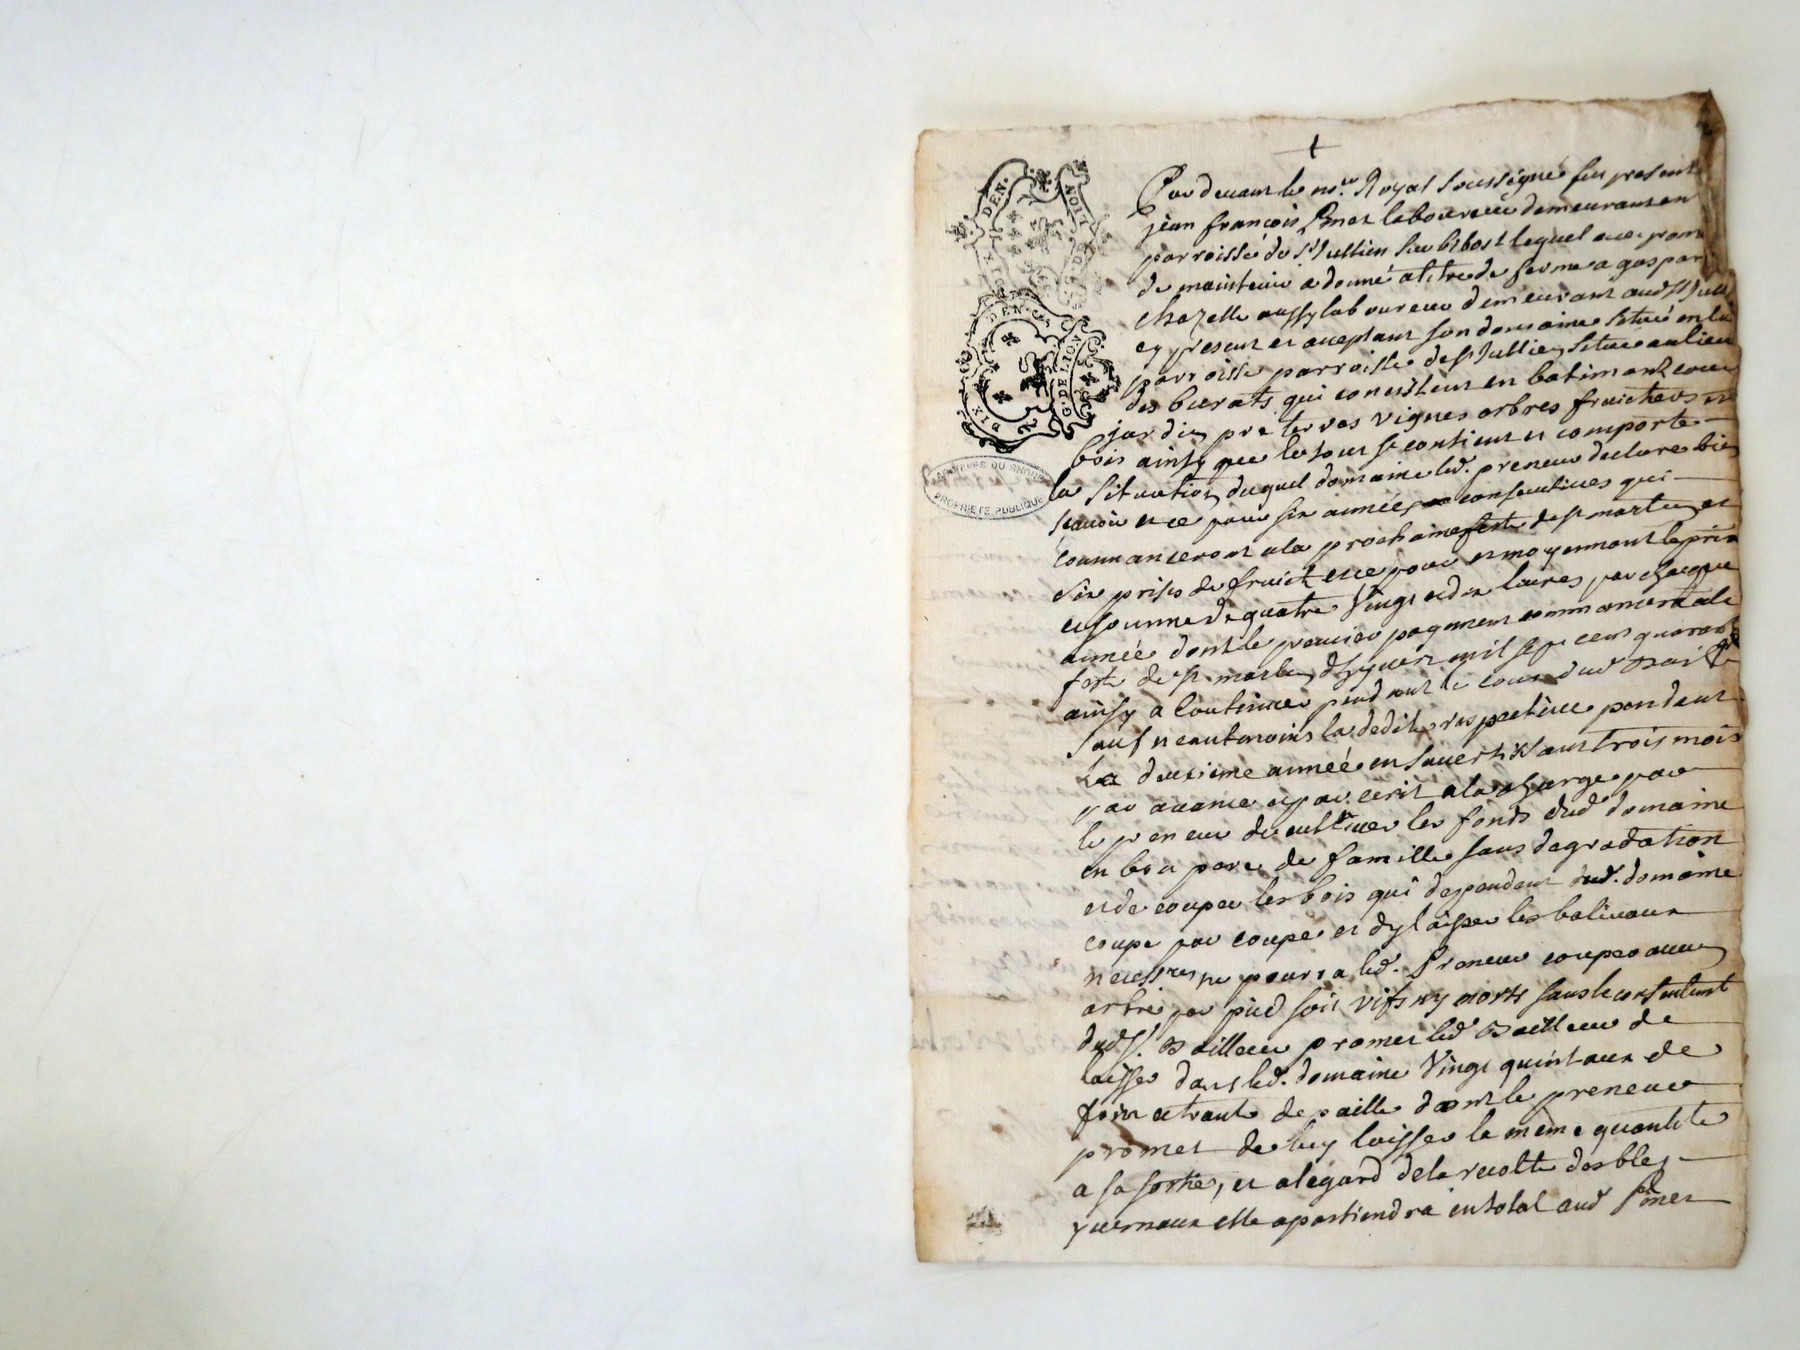 DIX DEN.
G. DE LION
DIX DEN. CES
G. DE LION
ARCHIVES DU RHONE
PROPRIÉTÉ PUBLIQUE
Par devant le no.re Royal soussigné fut present
jean françois Pinet laboureur demeurant en
parroisse de St Jullien sur bibost lequel avec prom
de maintenir a donné a titre de ferme a gaspar
chazelle aussy laboureur demeurant aud St Jull
cy present et aceptant son domaine situé en la
parroisse parroisse de St Jullien situe au lieu
des bierats qui consistent en batimant cour
jardin pre terres vignes arbres fruictiers et
bois ainsy que le tout se contient et comporte
la situation duquel domaine led. preneur declare bien
scavoir et ce pour six années consecutives qui
commanceront a la prochaine feste de st martin et
six prises de fruict et ce pour et moyennant le prix
et somme de quatre vingt et dix livres par chacque
année dont le premier payement commancera a la
feste de st martin d'hyvert mil sept cent quarant
ainsy a continuer pendant le cour dud bail
sauf neantmoins la dedite respective pendant
la deuxieme année en s'avertissant trois mois
par avance et par ecrit a la charge par
le preneur de cultiver les fonds dud domaine
en bon pere de famille sans degradation
et de couper les bois qui dependent dud. domaine
coupe par coupe et d'y laisser les balivaux
necessres ne pourra led. Preneur couper aucun
arbre par pied soit vifs ny morts sans le consentemt
dud S.r Bailleur promet led Bailleur de
laisser dans led. domaine vingt quintaux de
foin et trante de paille dont le preneur
promet de luy laisser la meme quantité
a sa sortie, et a legard de la recolte des bleds
yvernaux elle apartiendra en total aud Pinet